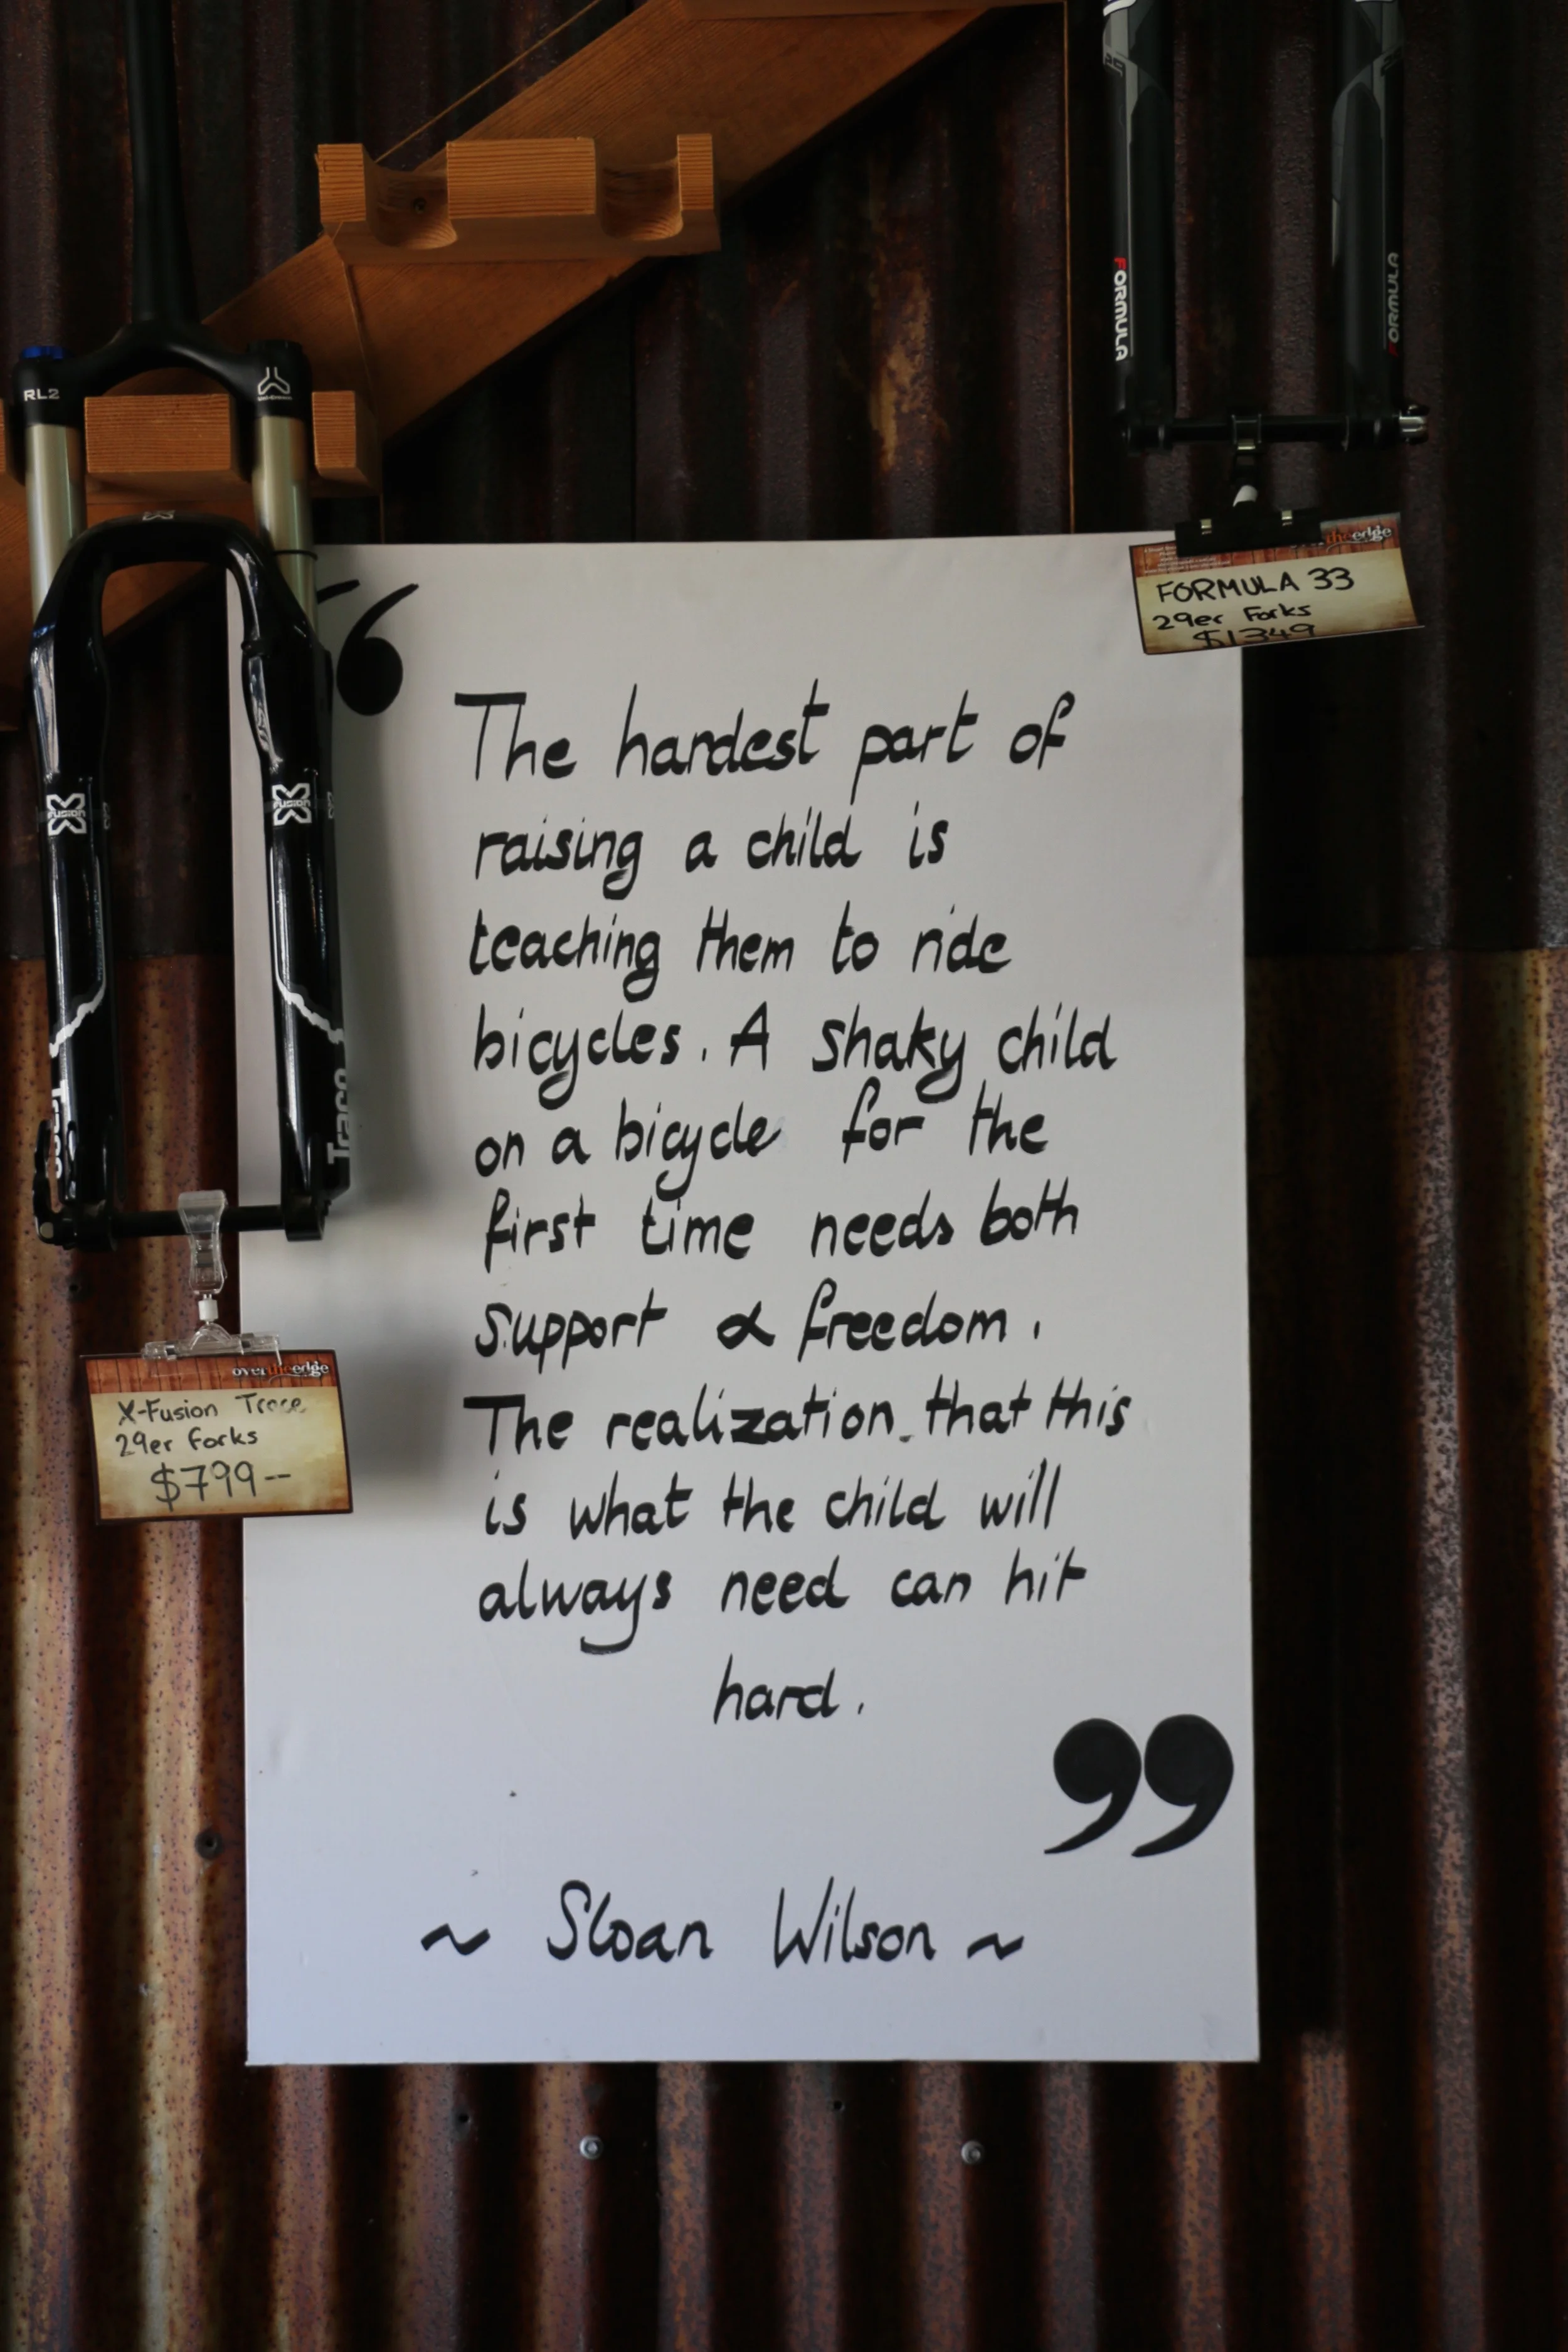 FORMULA
FORMULA
RL2
theedge
FORMULA 33
29er Forks
$1349
“
The hardest part of
raising a child is
teaching them to ride
bicycles. A shaky child
on a bicycle for the
first time needs both
support & freedom.
The realization that this
is what the child will
always need can hit
hard.
”
~ Sloan Wilson ~
X FUSION
X FUSION
Trace
Trace
overtheedge
X-Fusion Trace
29er Forks
$799--